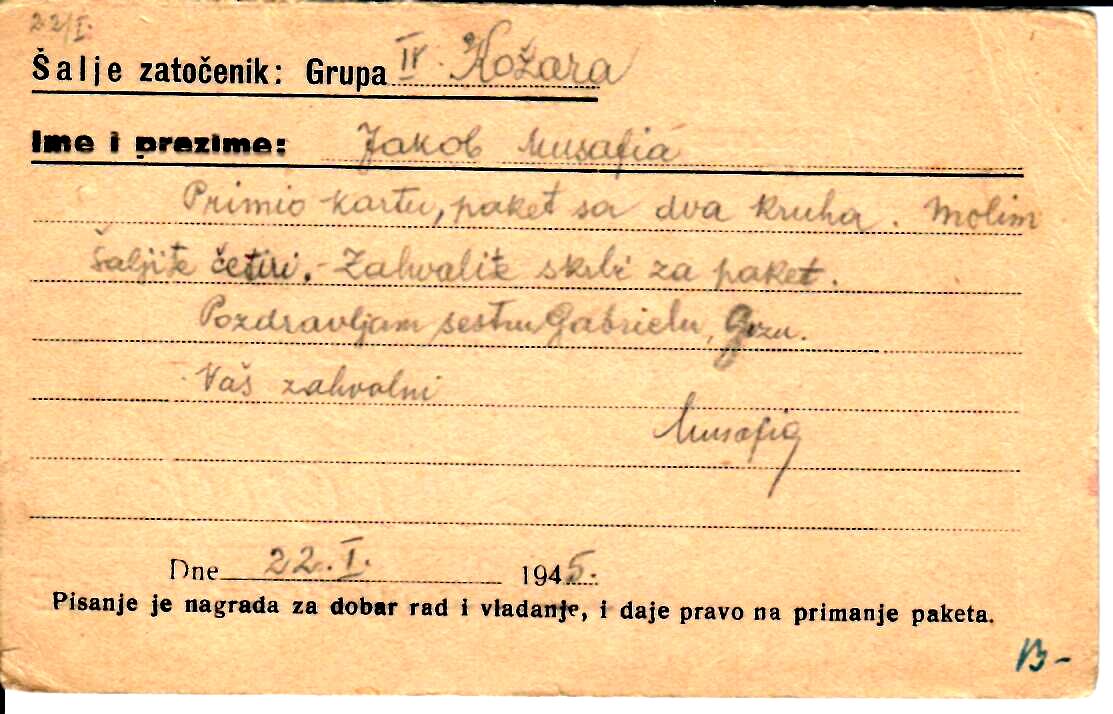 22/I.
Šalje zatočenik: Grupa IV. Kožara
Ime i prezime: Jakob Musafia
Primio kartu, paket sa dva kruha. Molim
šaljite četiri. - Zahvalite skrbi za paket.
Pozdravljam sestru Gabrielu, Gizu.
Vaš zahvalni
Musafia
Dne 22. I. 1945.
Pisanje je nagrada za dobar rad i vladanje, i daje pravo na primanje paketa.